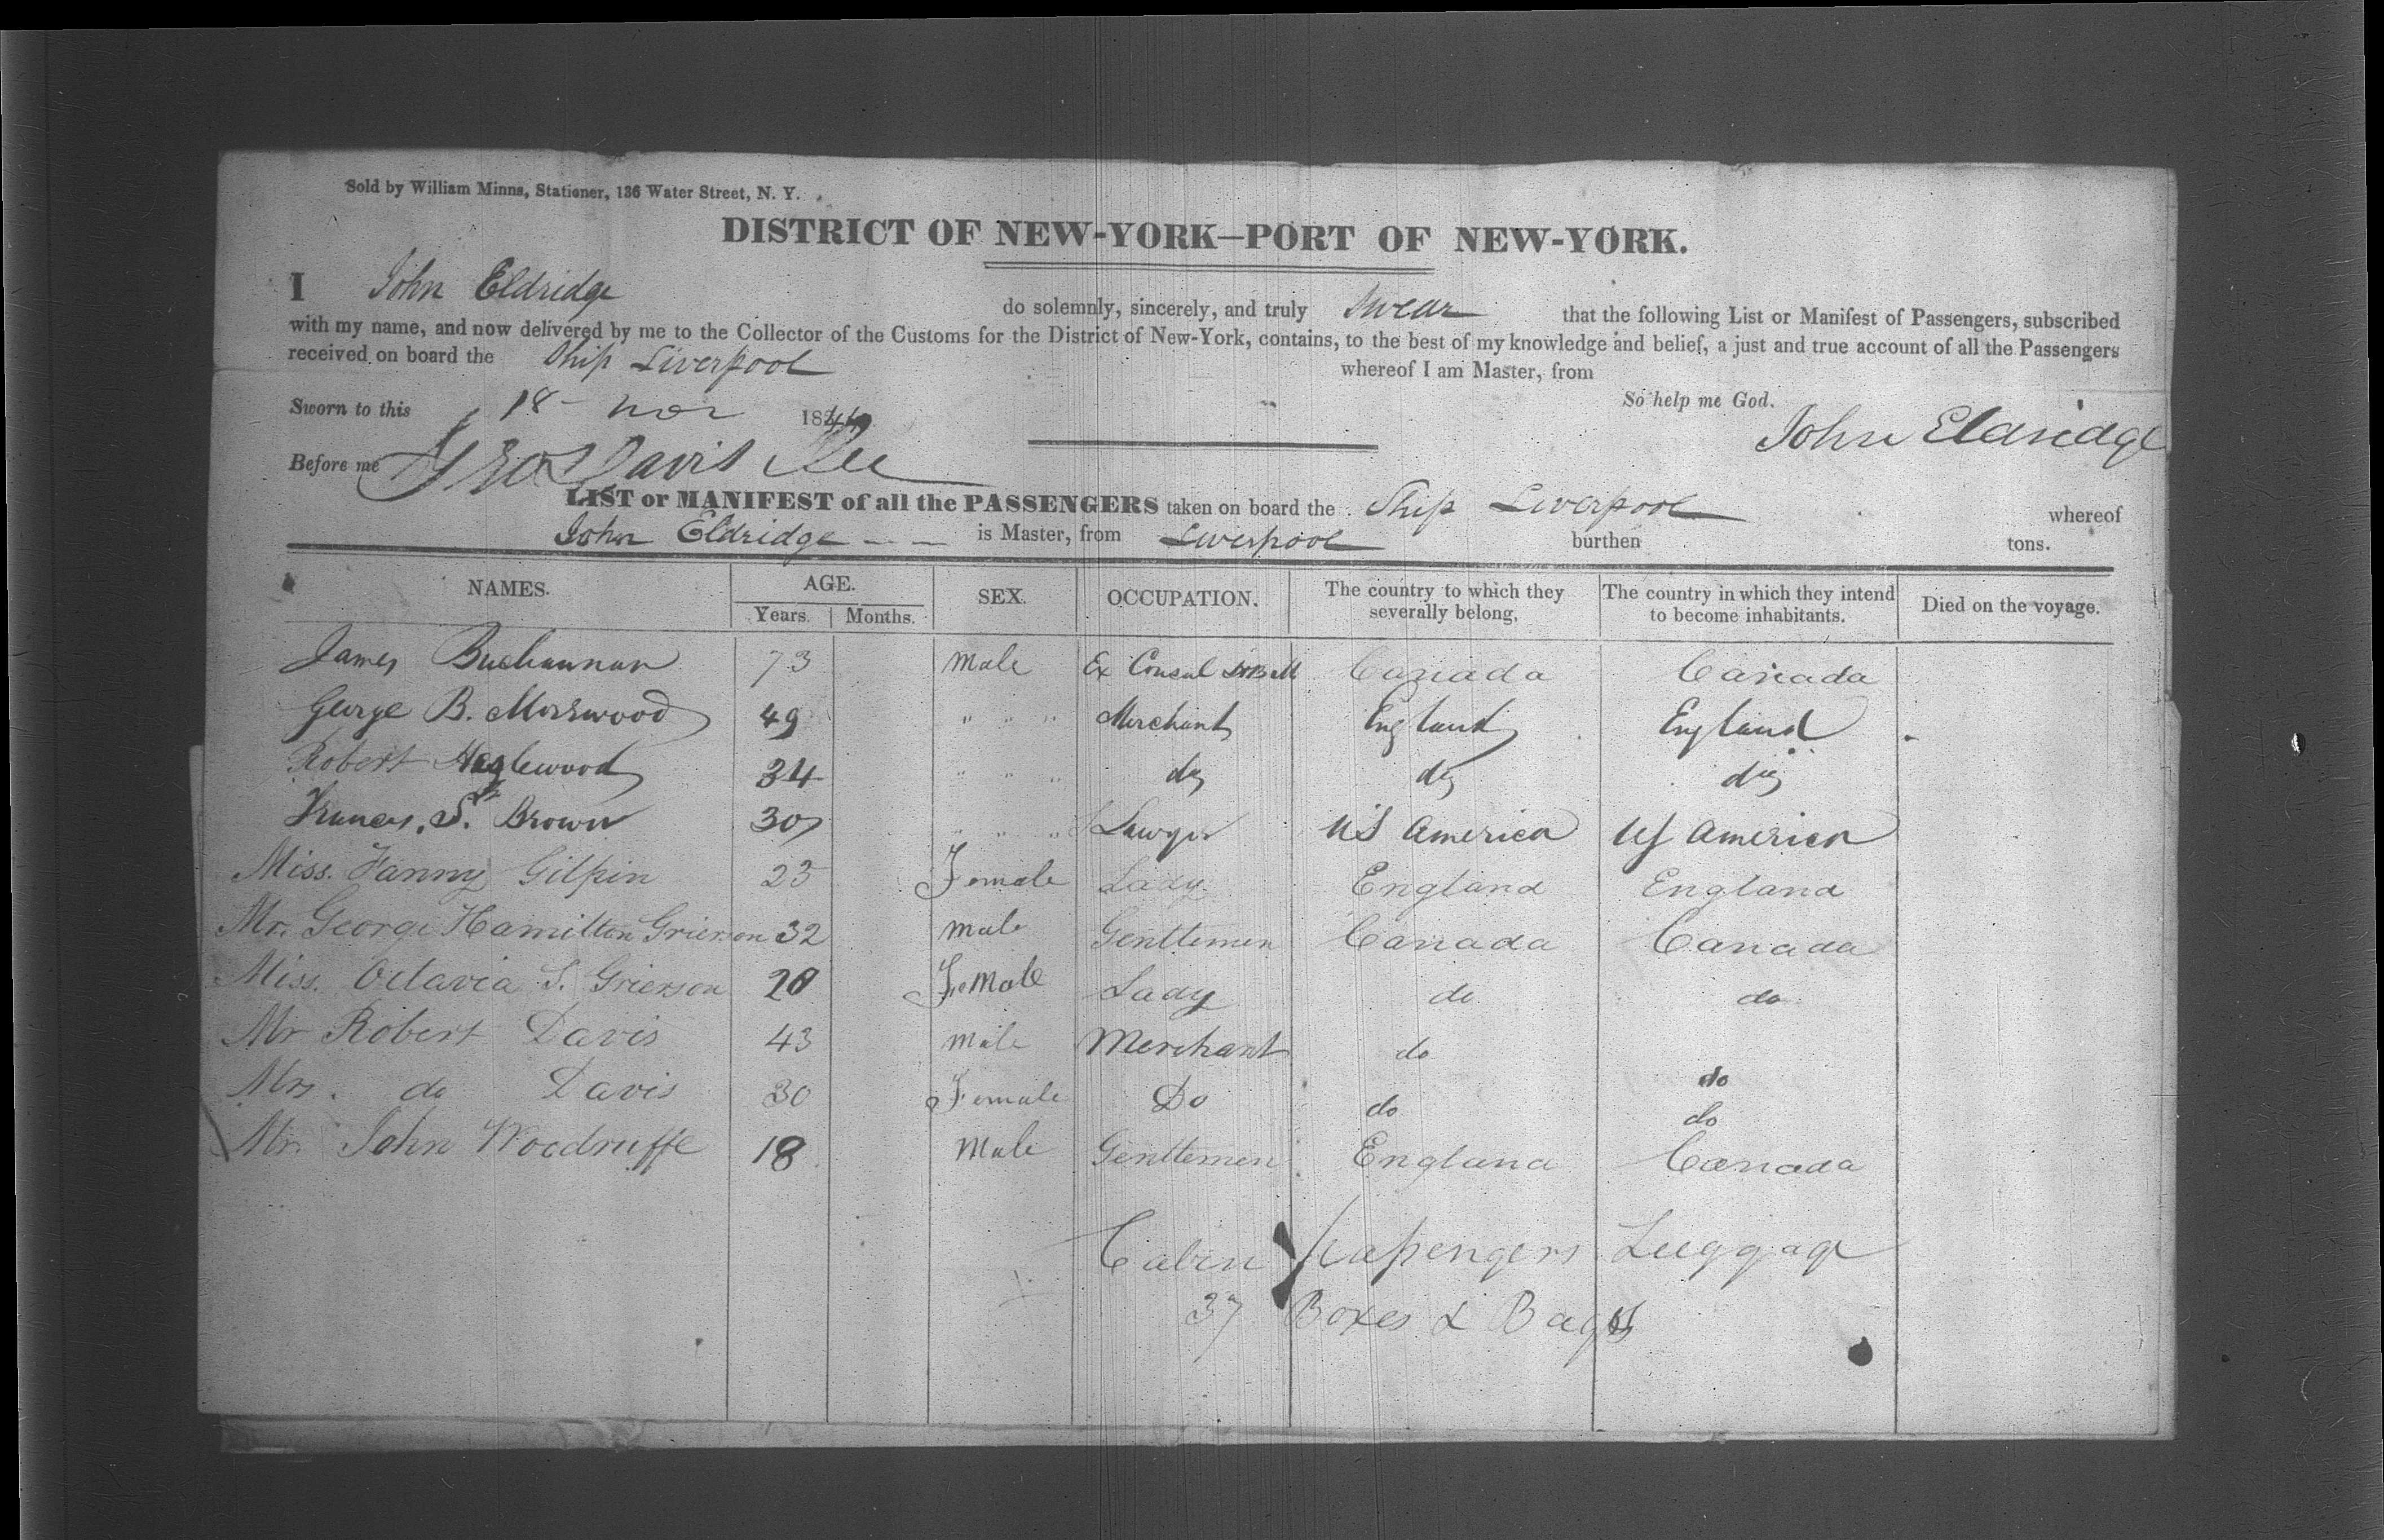 Sold by William Minns, Stationer, 136 Water Street, N. Y.
DISTRICT OF NEW-YORK—PORT OF NEW-YORK.
I John Eldridge do solemnly, sincerely, and truly Swear that the following List or Manifest of Passengers, subscribed
with my name, and now delivered by me to the Collector of the Customs for the District of New-York, contains, to the best of my knowledge and belief, a just and true account of all the Passengers
received on board the Ship Liverpool whereof I am Master, from
Sworn to this 18 - Nov 1844 So help me God.
John Eldridge
Before me Geo Davis
LIST or MANIFEST of all the PASSENGERS taken on board the Ship Liverpool whereof
John Eldridge is Master, from Liverpool burthen tons.
NAMES. AGE. Years. Months. SEX. OCCUPATION. The country to which they severally belong. The country in which they intend to become inhabitants. Died on the voyage.
James Buchannan 73 Male Ex Consul Canada Canada
George B. Morewood 49 " " " Merchant England England
Robert 34 " " " do do do
Frances. S. Brown 30 " " " Lawyer US America US America
Miss. Fanny Gilpin 23 Female Lady England England
Mr. George Hamilton Grierson 32 Male Genttemen Canada Canada
Miss. Octavia S. Grierson 20 FeMale Lady do do
Mr Robert Davis 43 Male Merchant do do
Mrs. do Davis 30 Female Do do do
Mr. John Woodruffe 18 Male Genttemen England Canada
Cabin Passengers Luggage
37 Boxes & Bags